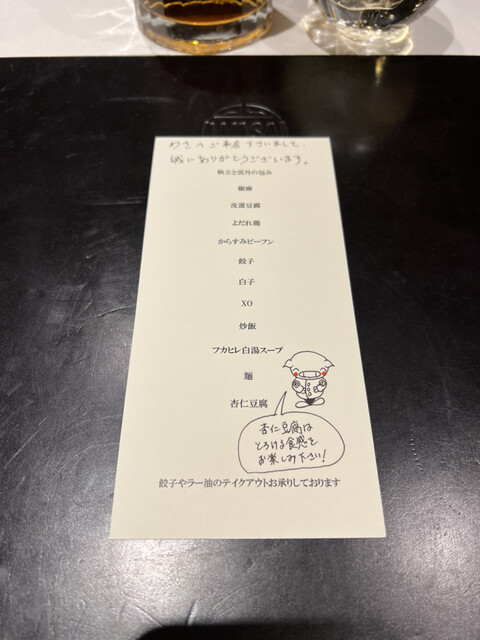 わさへご来店下さいまして、
誠にありがとうございます。
帆立と雲丹の包み
椒麻
皮蛋豆腐
よだれ鶏
からすみビーフン
餃子
白子
XO
炒飯
フカヒレ白湯スープ
麺
杏仁豆腐
杏仁豆腐は
とろける食感を
お楽しみ下さい!
餃子やラー油のテイクアウトお承りしております